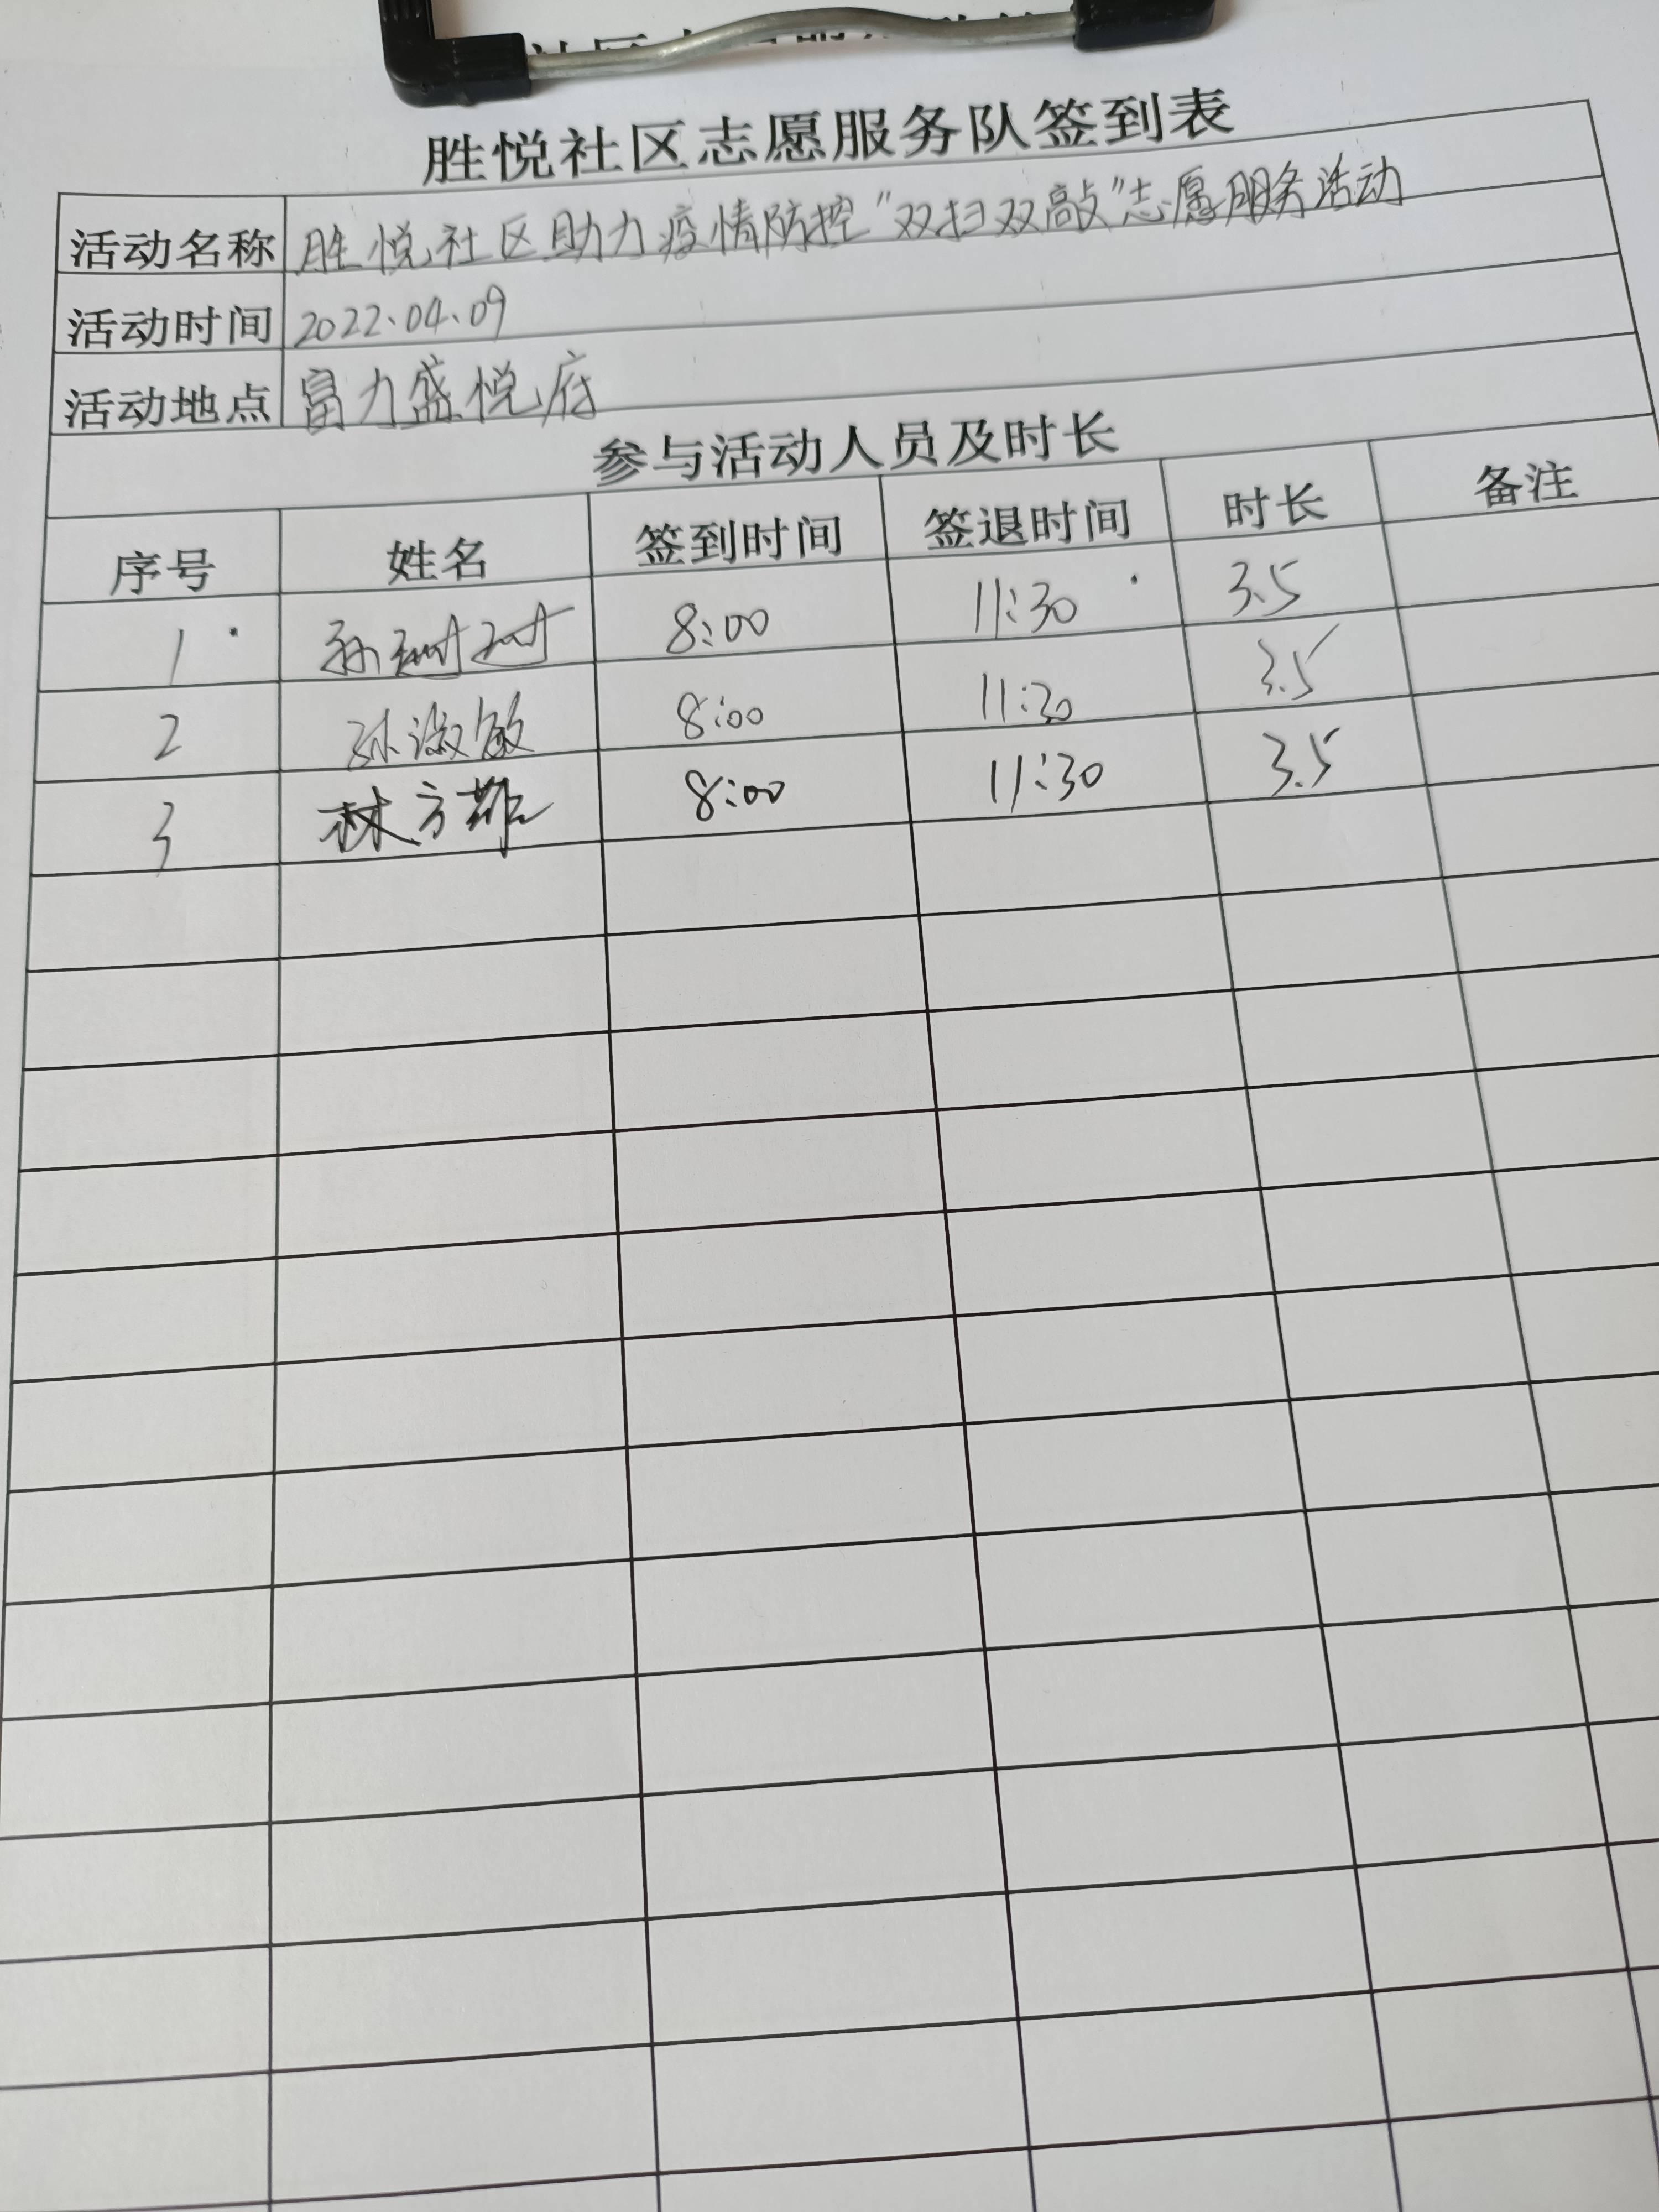 胜悦社区志愿服务队签到表
活动名称 胜悦社区助力疫情防控"双扫双敲"志愿服务活动
活动时间 2022.04.09
活动地点 富力盛悦府
参与活动人员及时长
序号 姓名 签到时间 签退时间 时长 备注
1 孙 8:00 11:30 3.5
2 孙淑敏 8:00 11:30 3.5
3 林方雄 8:00 11:30 3.5